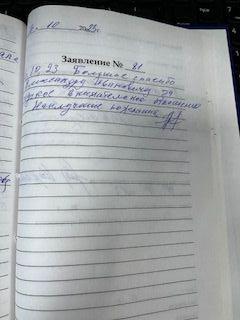 10 2023г.
Заявление № 81
10 23 Большое спасибо
Александру Ивановичу за
внимательное отношение
Наилучшие пожелания